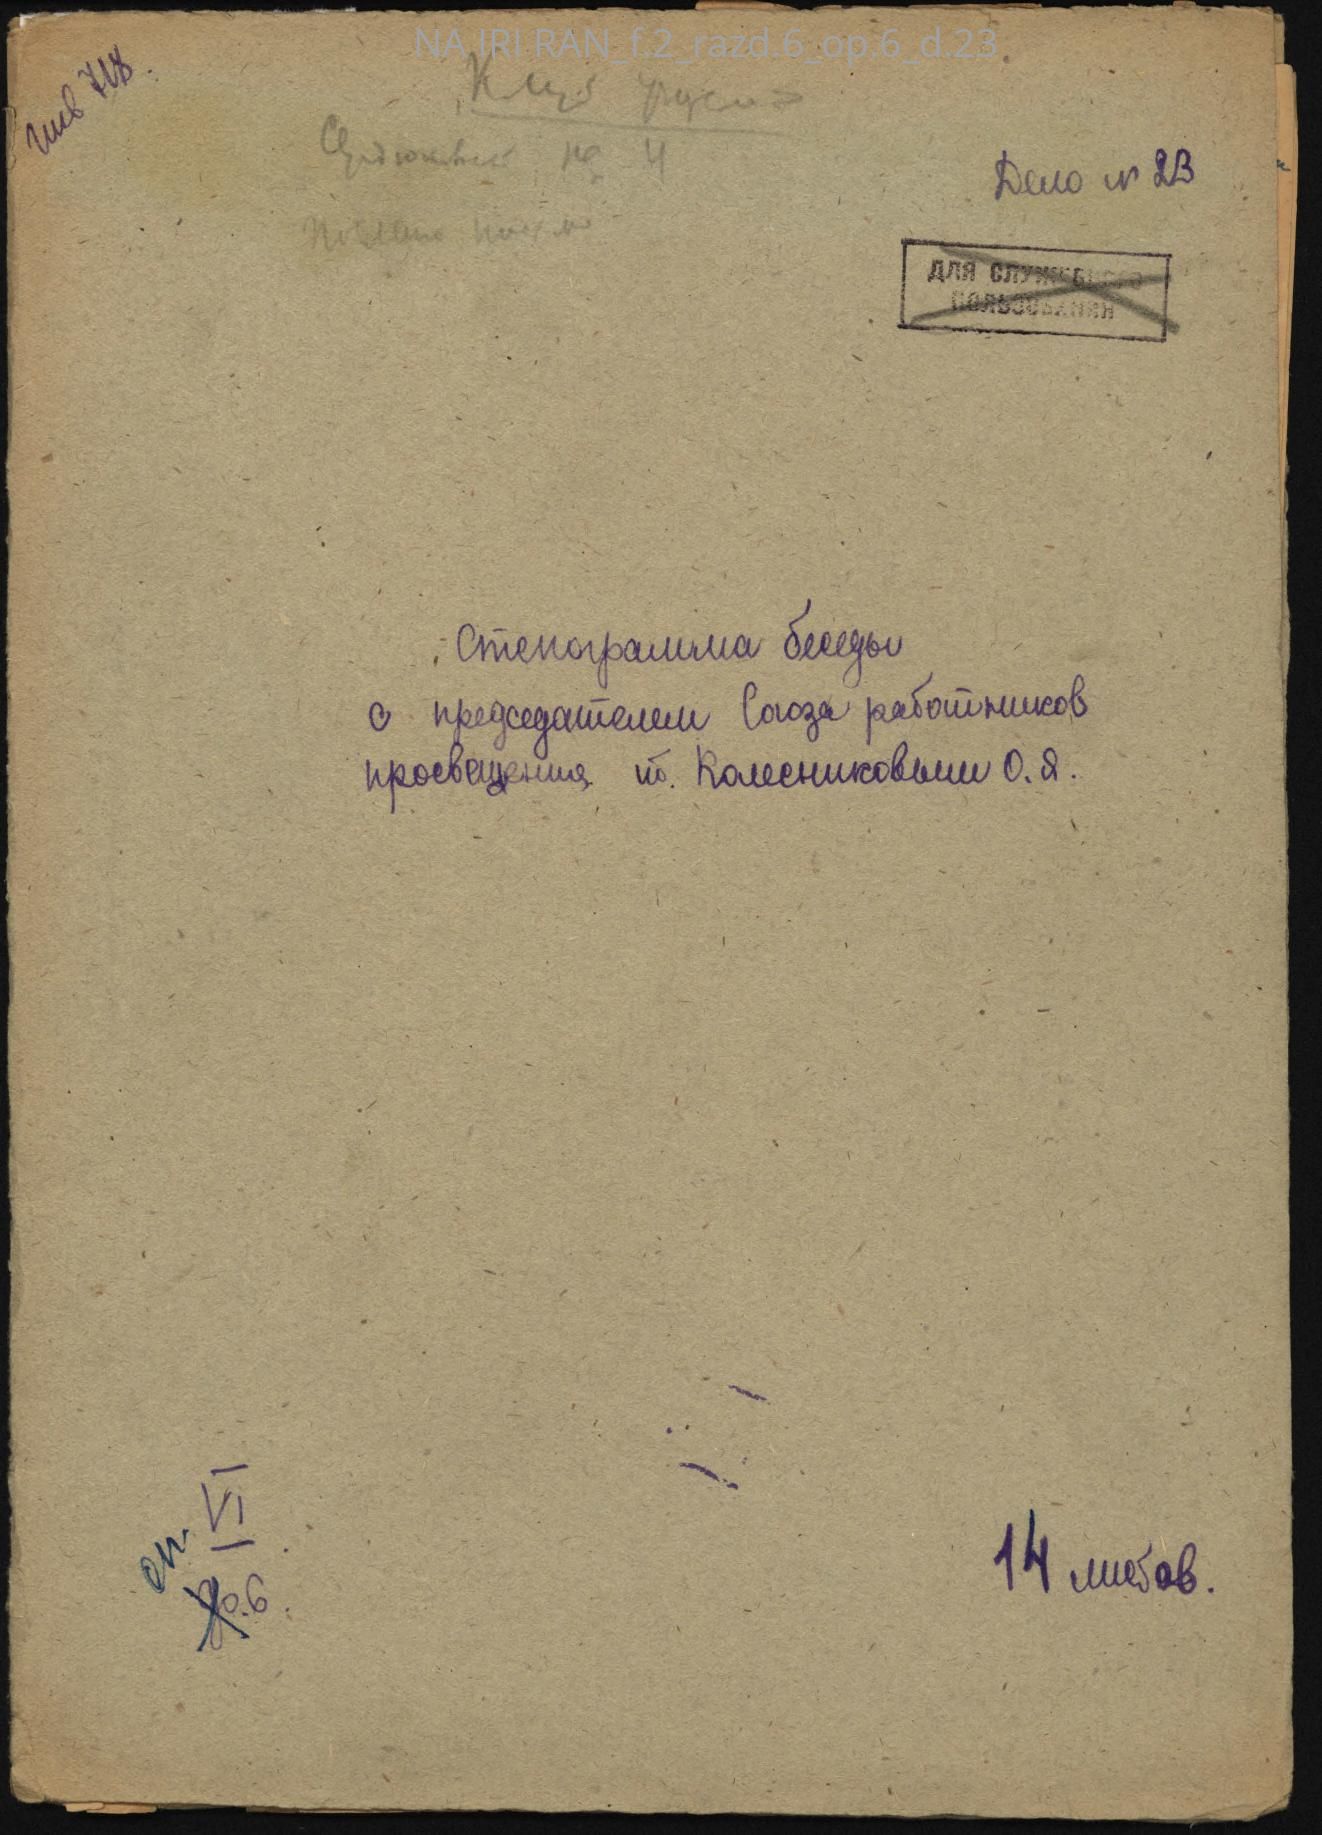 NA IRI RAN_f.2_razd.6_op.6_d.23
инв 718.
Дело № 23
ДЛЯ СЛУЖЕБНОГО
ПОЛЬЗОВАНИЯ
Стенограмма беседы
с председателем Союза работников
просвещения т. Колесниковым О.Я.
VI
оп.
6.
14 листов.